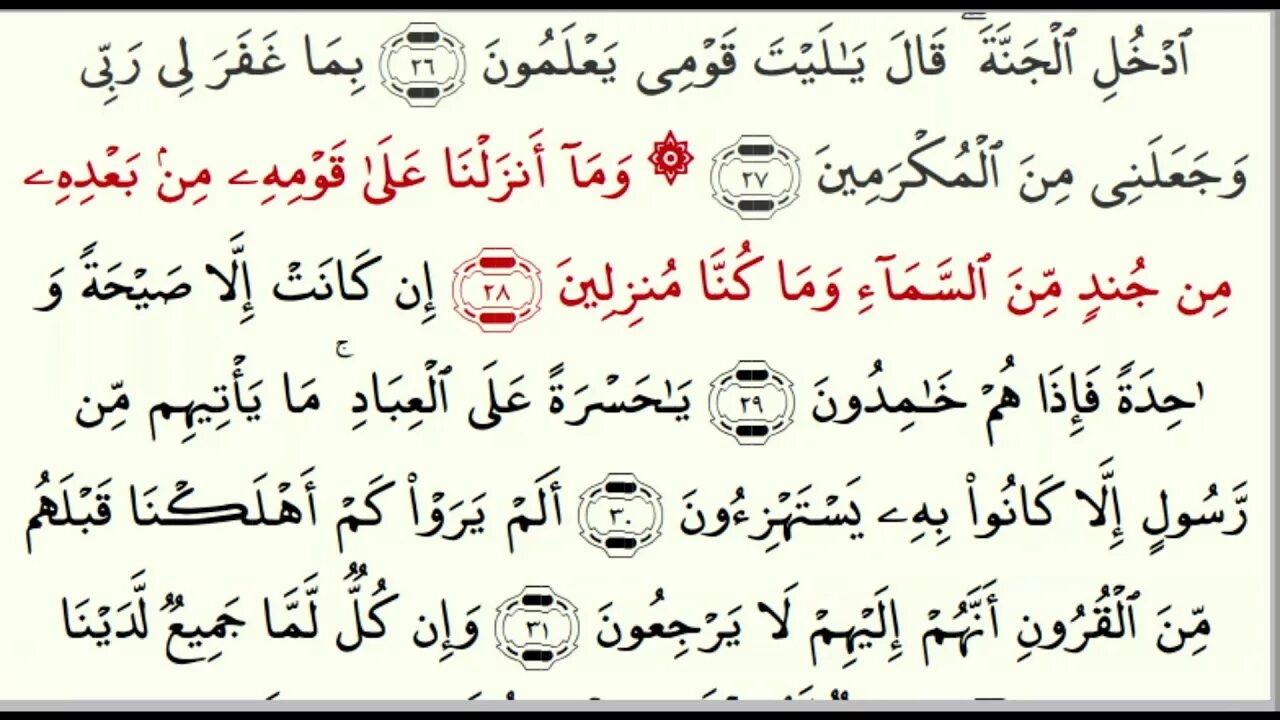 ٱدْخُلِ ٱلْجَنَّةَ ۖ قَالَ يَـٰلَيْتَ قَوْمِى يَعْلَمُونَ ٢٦ بِمَا غَفَرَ لِى رَبِّى
وَجَعَلَنِى مِنَ ٱلْمُكْرَمِينَ ٢٧ ۞ وَمَآ أَنزَلْنَا عَلَىٰ قَوْمِهِۦ مِنۢ بَعْدِهِۦ
مِن جُندٍ مِّنَ ٱلسَّمَآءِ وَمَا كُنَّا مُنزِلِينَ ٢٨ إِن كَانَتْ إِلَّا صَيْحَةً وَ
ٰحِدَةً فَإِذَا هُمْ خَـٰمِدُونَ ٢٩ يَـٰحَسْرَةً عَلَى ٱلْعِبَادِ ۚ مَا يَأْتِيهِم مِّن
رَّسُولٍ إِلَّا كَانُوا۟ بِهِۦ يَسْتَهْزِءُونَ ٣٠ أَلَمْ يَرَوْا۟ كَمْ أَهْلَكْنَا قَبْلَهُم
مِّنَ ٱلْقُرُونِ أَنَّهُمْ إِلَيْهِمْ لَا يَرْجِعُونَ ٣١ وَإِن كُلٌّ لَّمَّا جَمِيعٌ لَّدَيْنَا